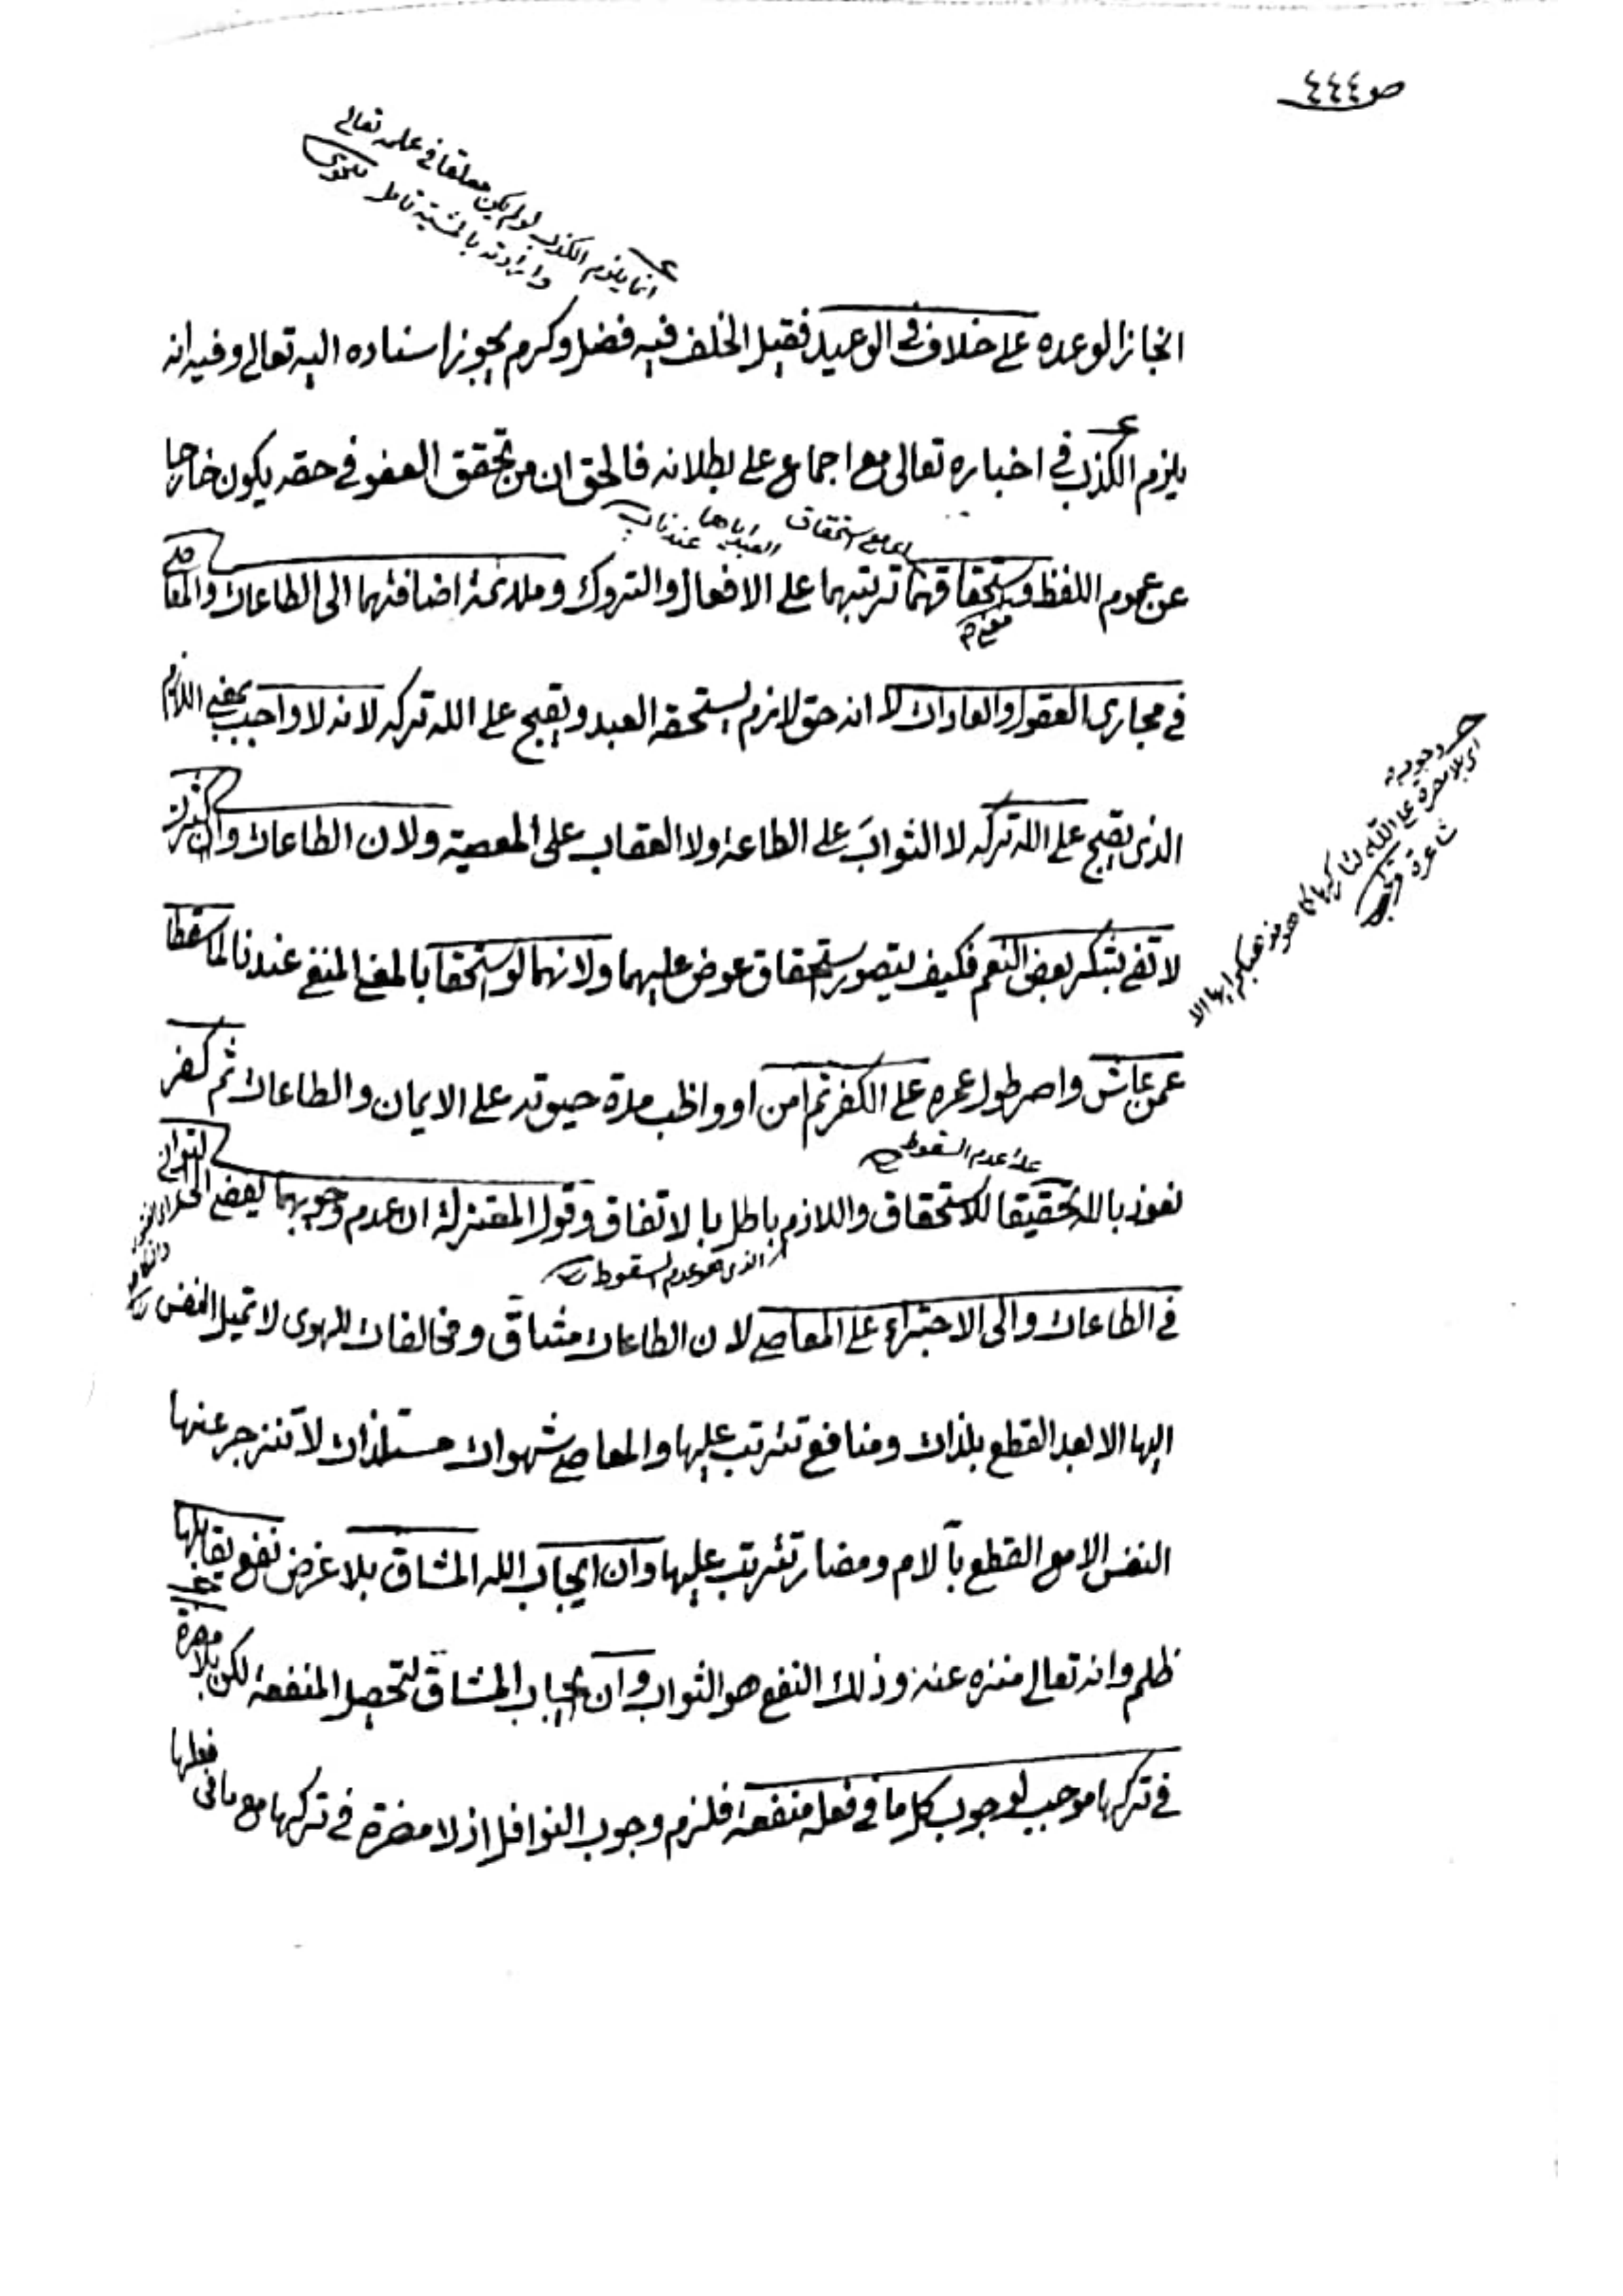 ص٤٤٤
انما يلزم الكذب لو لم يكن معلقا في علمه تعالى
وارادته بالمشيئة تامل
انجازا لوعده على خلاف في الوعيد فقيل الخلف فيه فضل وكرم يجوز اسناده اليه تعالى وفيه انه
يلزم الكذب في اخباره تعالى مع اجماع على بطلانه فالحق ان من تحقق العفو في حقه يكون خارجا
اى مع استحقاق العبد اياها عندنا
عن عموم اللفظ وستحقاقهما ترتبهما على الافعال والتروك وملائمة اضافتهما الى الطاعات والمعاصى
في مجارى العقول والعادات لا انه حق لازم يستحقه العبد ويقبح على الله تركه لانه لا واجب بمعنى اللازم
الذى يقبح على الله تركه لا الثواب على الطاعة ولا العقاب على المعصية ولان الطاعات وان كثرت
لا تفى بشكر بعض النعم فكيف يتصور ستحقاق عوض عليهما ولانهما لو ستحقا بالمعنى المنفى عندنا لما سقطا
عمن عاش واصر طول عمره على الكفر ثم امن او واظب مدة حيوته على الايمان والطاعات ثم كفر
علة عدم السقوط
نعوذ بالله تحقيقا للاستحقاق واللازم باطل بالاتفاق وقول المعتزلة ان عدم وجوبهما يفضى الى التوانى
الذى هو عدم السقوط
في الطاعات والى الاجتراء على المعاصى لان الطاعات مشاق ومخالفات للهوى لا تميل النفس
اليها الا بعد القطع بلذات ومنافع تترتب عليها والمعاصى شهوات مستلذات لا تنزجر عنها
النفس الا مع القطع بآلام ومضار تترتب عليها وان ايجاب الله المشاق بلا غرض نفع يقابلها
ظلم وانه تعالى منزه عنه وذلك النفع هو الثواب وان ايجاب المشاق لتحصيل المنفعة لكن بلا مضرة
في تركها موجب لوجوب كل ما في فعله منفعة فلزم وجوب النوافل اذ لا مضرة في تركها مع ما فى فعلها